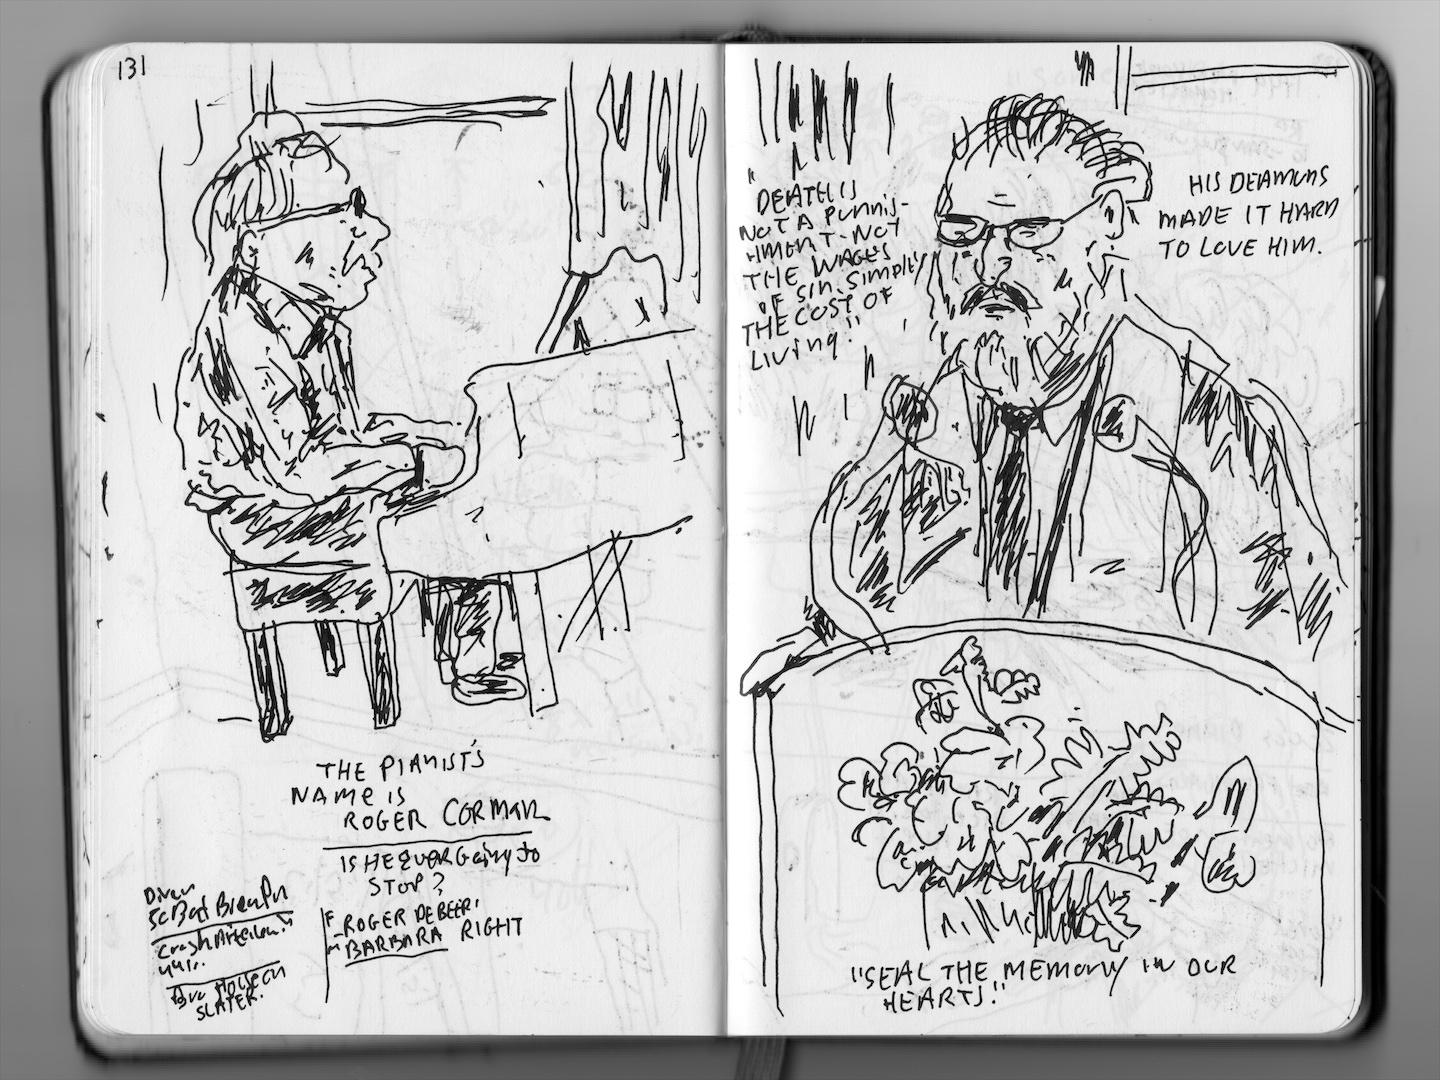 131
THE PIANIST'S
NAME IS
ROGER CORMAN
IS HE EVER Going to
STOP?
F ROGER DEBEER
M BARBARA RIGHT
Bad
Crash
SLATER.
"DEATH IS
NOT A PUNNIS-
HMENT-NOT
THE WAGES
OF SIN. SIMPLY
THE COST OF
LIVING."
HIS DEAMONS
MADE IT HARD
TO LOVE HIM.
"SEAL THE MEMORY IN OUR
HEARTS."